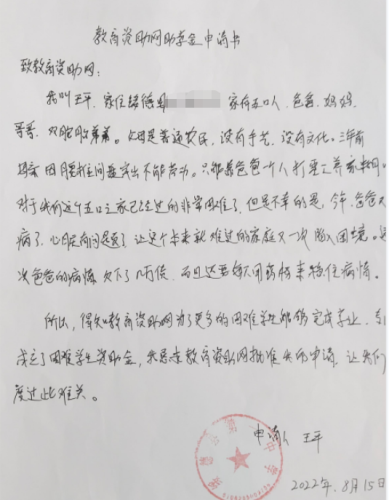 教育资助网助学金申请书
致教育资助网:
我叫王平,家住绥德 家有五口人,爸爸、妈妈、
双胞胎弟弟。父母是普通农民,没有手艺,没有文化。三年前
妈妈因腰椎问题突出不能劳动。只能靠爸爸一个人打零工养家糊口。
对于我们这个五口之家已经过的非常困难了,但是不幸的是,今年,爸爸又
病了,心脏有问题了,让这个本来就难过的家庭又一次陷入困境。
次爸爸的病情欠下了几万债,而且还要每天用药材来维住病情。
所以,得知教育资助网为了更多的困难学生能够完成学业,
成立了困难学生资助金,我恳求教育资助网批准我的申请,让我们
度过此难关。
申请人 王平
2022年.8月15日